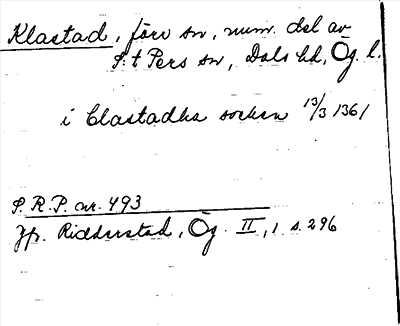 Klastad, förr sn, num. del av
S:t Pers sn, Dals hd, Ög. l.
i Clastadha socken 13/3 1361
S.R.P. nr. 493
Jfr. Ridderstad, Ög. II, 1 s. 296